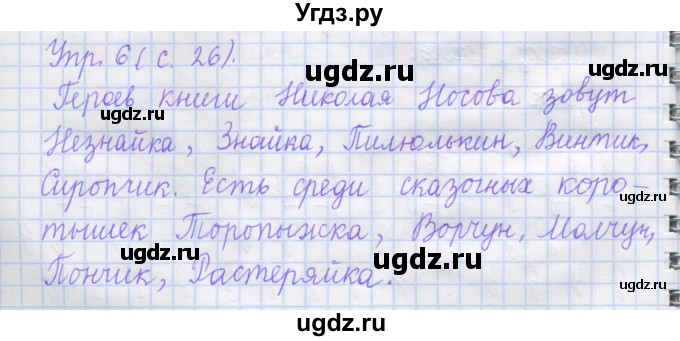 Угдз.ру
Упр. 6 (с. 26).
ugdz.ru
ugdz.ru
Героев книги Николая Носова зовут
Незнайка, Знайка, Пилюлькин, Винтик,
ugdz.ru
ugdz.ru
Сиропчик. Есть среди сказочных коро-
ugdz.ru
тышек Торопыжка, Ворчун, Молчун,
ugdz.ru
ugdz.ru
Пончик, Растеряйка.
ugdz.ru
ugdz.ru
ugdz.ru